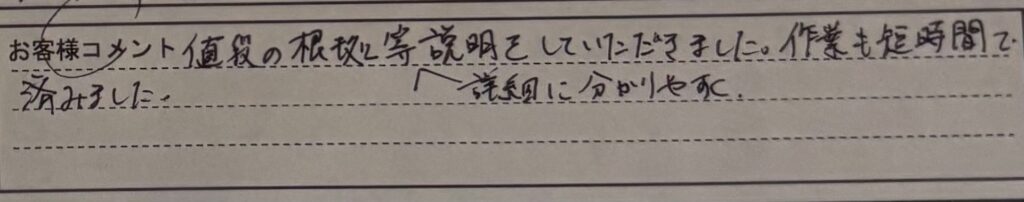 お客様コメント 値段の根拠等説明をしていただきました。作業も短時間で
済みました。
詳細に分かりやすく、